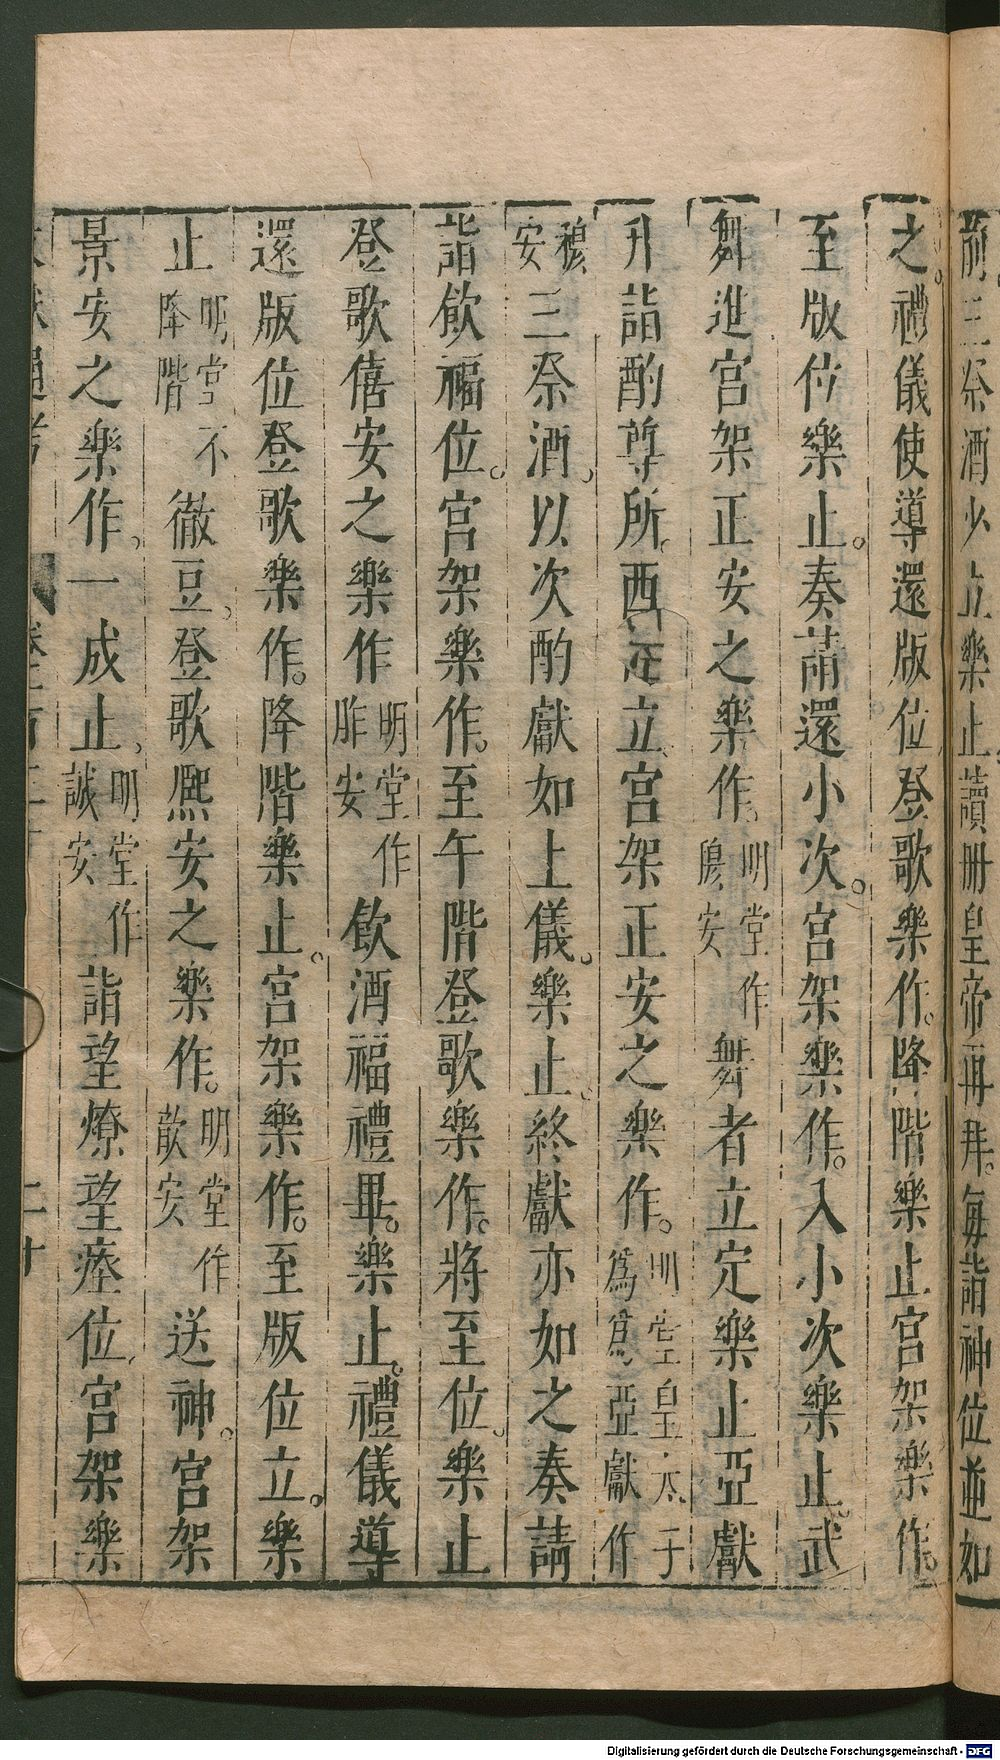 前三祭酒少立樂止讀冊皇帝再拜。每詣神位並如
之。禮儀使導還版位登歌樂作。降階樂止宮架樂作。
至版位樂止。奏請還小次。宮架樂作。入小次樂止。武
舞進宮架正安之樂作。明堂作隱安舞者立定樂止亞獻
升詣酌尊所。西向立。宮架正安之樂作。明堂皇太子爲亞獻作
穆安三祭酒。以次酌獻如上儀。樂止。終獻亦如之奏請
詣飲福位。宮架樂作。至午階登歌樂作。將至位。樂止
登歌僖安之樂作明堂作胙安飲酒福禮畢。樂止。禮儀導
還版位登歌樂作。降階樂止。宮架樂作。至版位立。樂
止明堂不降階徹豆。登歌熙安之樂作。明堂作歆安送神。宮架
景安之樂作。一成止。明堂作誠安詣望燎望瘞位。宮架樂
二十
Digitalisierung gefördert durch die Deutsche Forschungsgemeinschaft - DFG